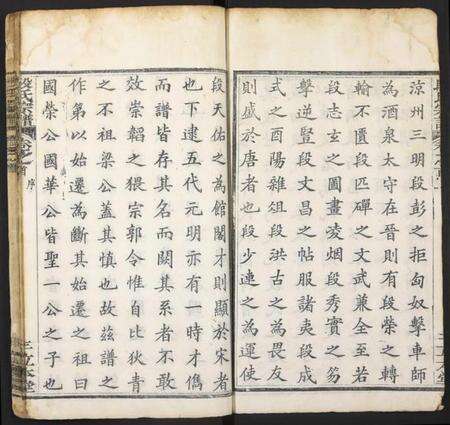 涼州三明段彭之拒匈奴擊車師
為酒泉太守在晉則有段榮之轉
輸不匱段匹磾之文武兼全至若
段志玄之圖畫凌烟段秀實之笏
擊逆豎段文昌之帖服諸夷段成
式之酉陽雜俎段洪古之為畏友
則盛於唐者也段少連之為運使
段天佑之為館閣才則顯於宋者
也下逮五代元明亦有一時才儁
而譜皆存其名而闕其系者不敢
效崇韜之猥宗郭令惟自比狄青
之不祖梁公蓋其慎也故茲譜之
作第以始遷為斷其始遷之祖曰
國榮公國華公皆聖一公之子也
段氏宗譜
序
三立堂